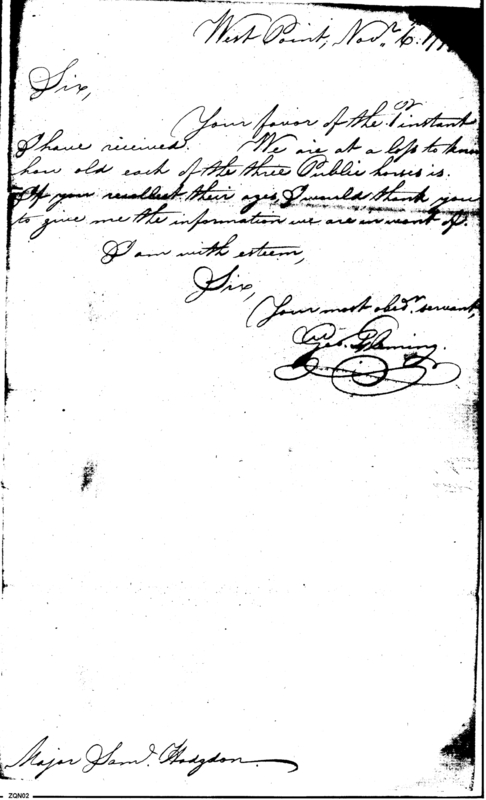 West Point, Novr. 6. 17
Sir,
Your favor of the instant
I have received. We are at a loss to know
how old each of the three Public horses is.
If you recollect their ages, I would thank you
to give me the information we are in want of.
I am with esteem,
Sir,
Your most obedt. servant,
Geo. Fleming.
Major Saml. Hodgdon.
ZQN02